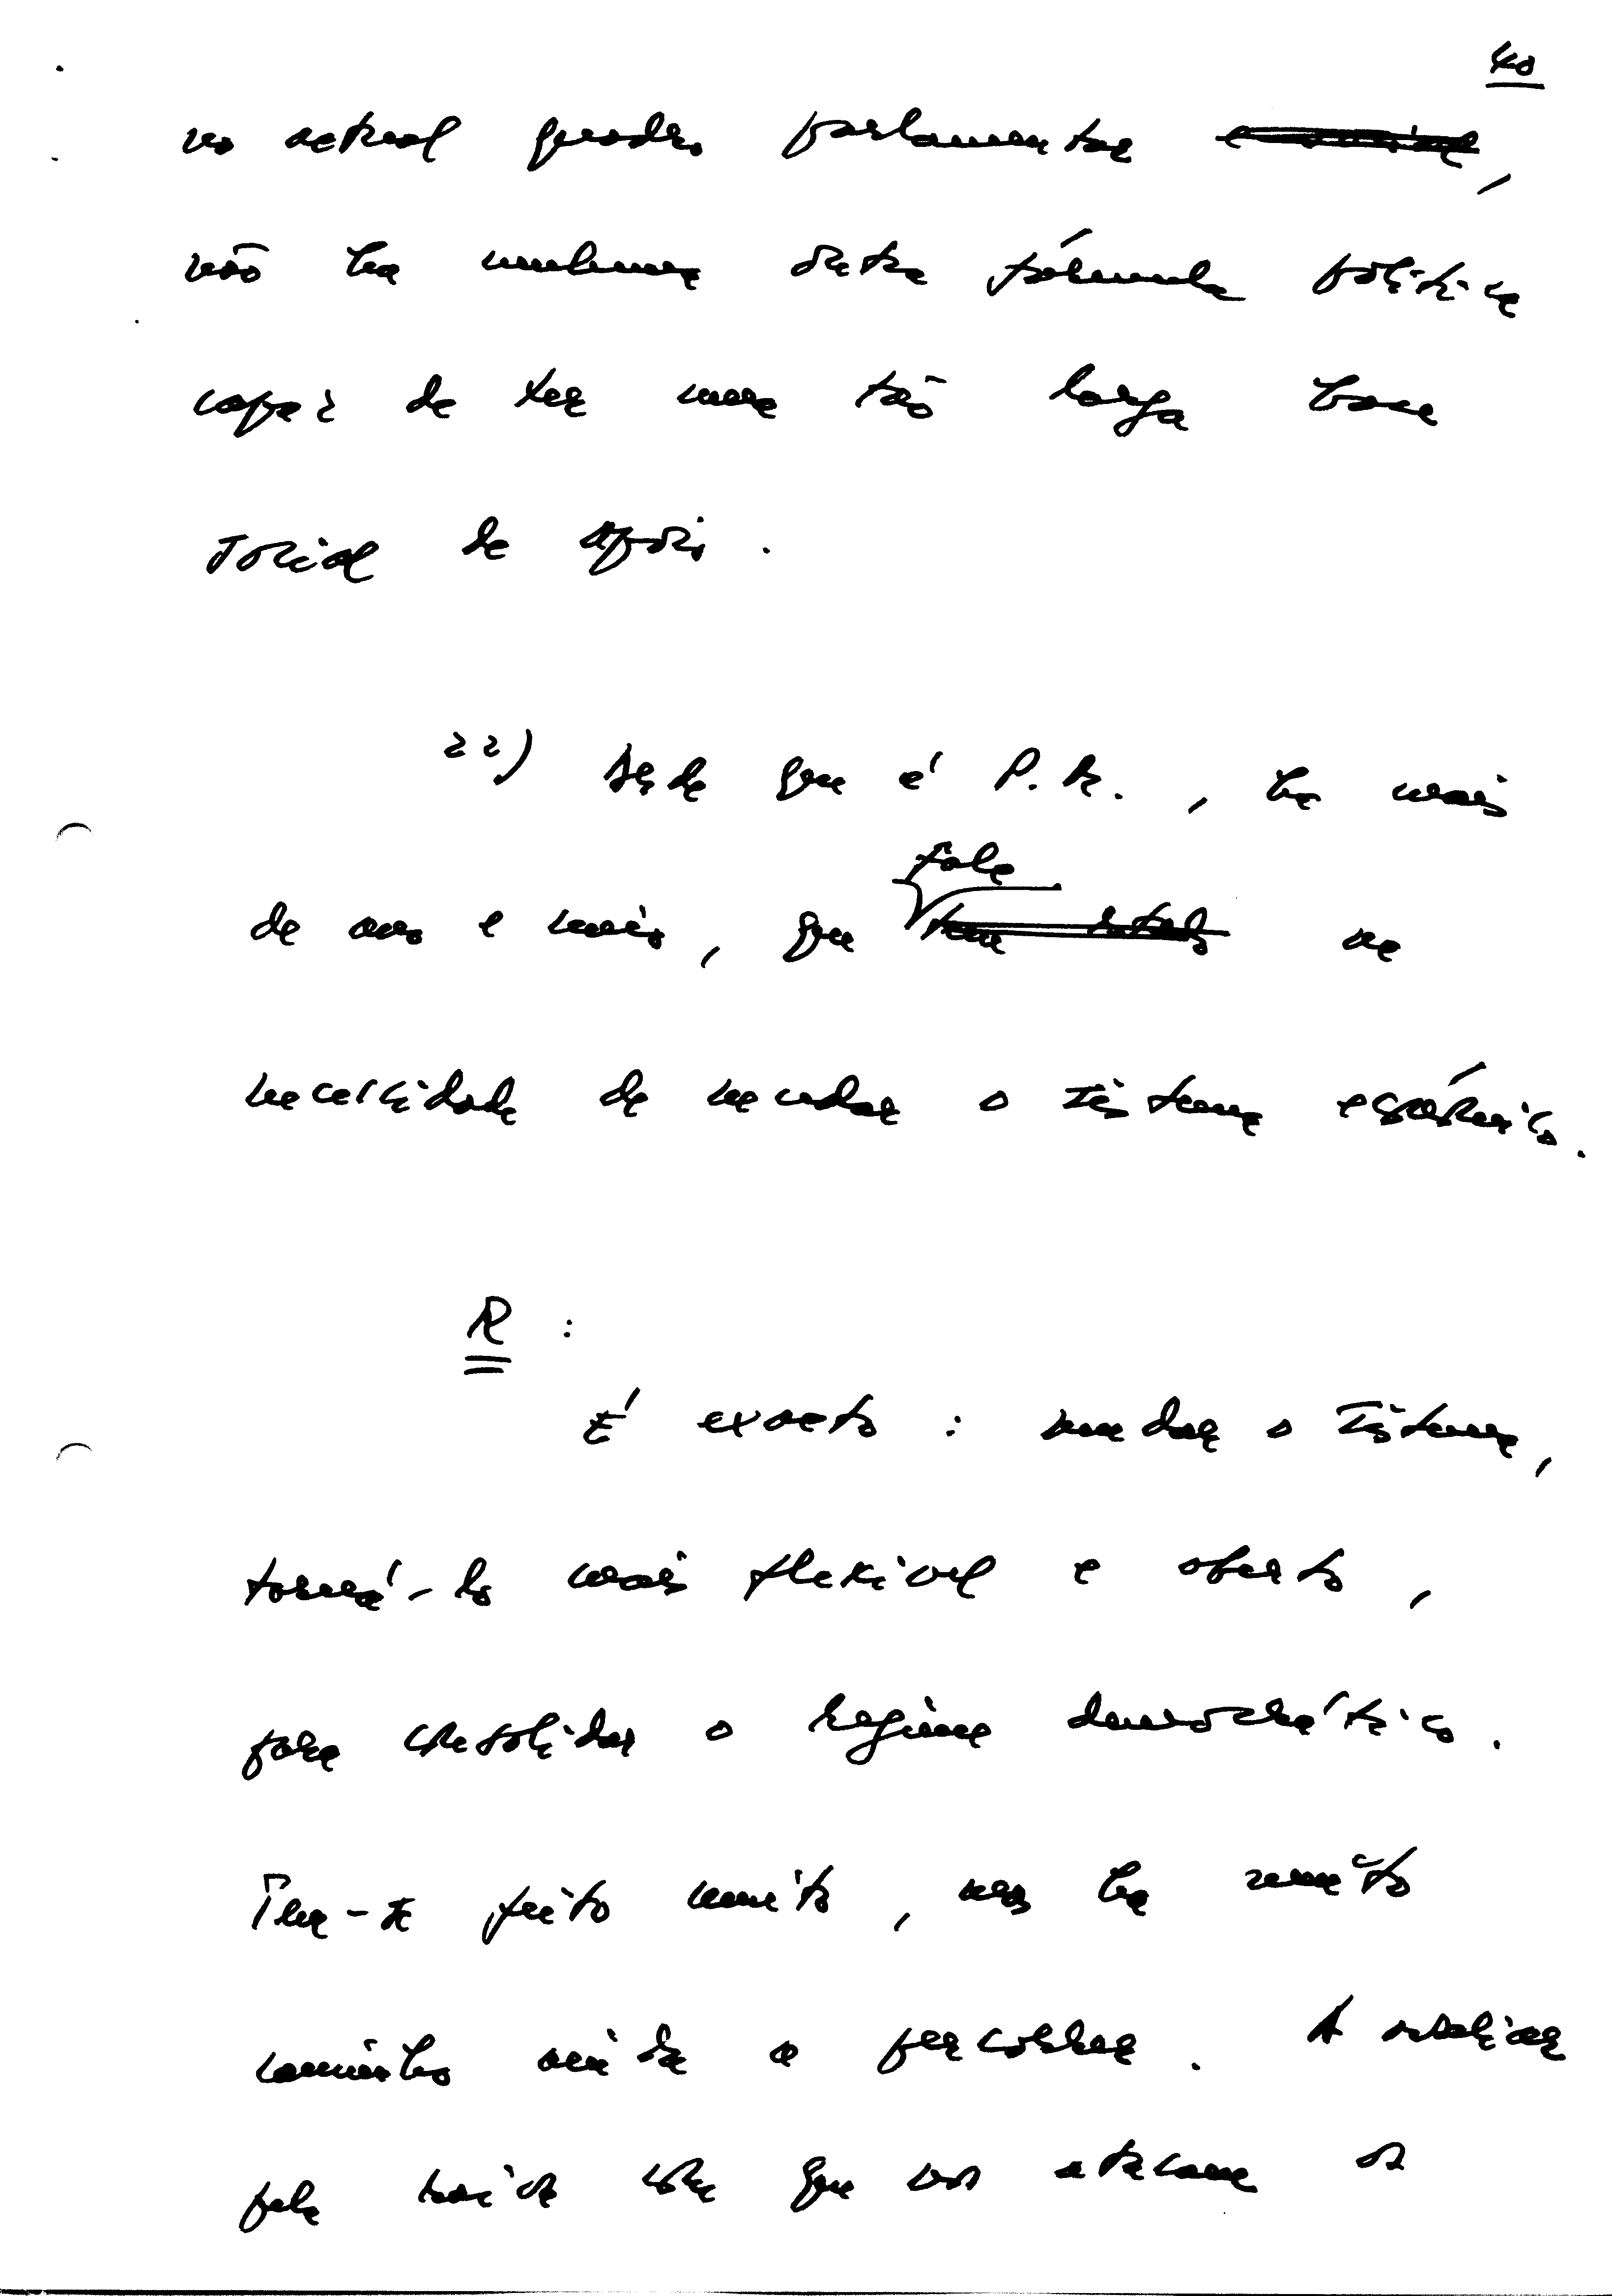 40
no actual quadro parlamentar,
não há nenhuma outra fórmula política
capaz de ter uma tão larga base
social de apoio.
22) Desde que é P.R., há mais
de ano e meio, que fala na
necessidade de mudar o sistema económico.
R:
É exacto: mudar o sistema,
torná-lo mais flexível e aberto,
para consolidar o regime democrático.
Tem-se feito muito, mas há muito
caminho ainda a percorrer. A avaliar
pela raiva com que nos atacam os